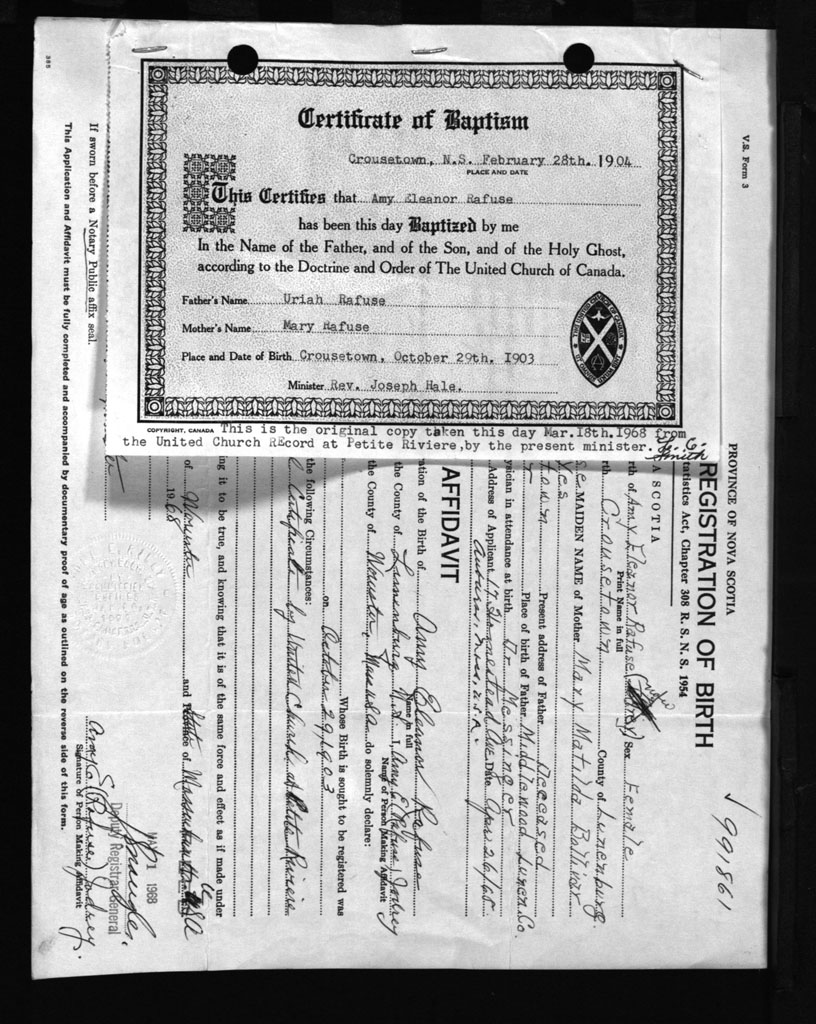 Certificate of Baptism
Crousetown, N.S. February 28th. 1904
PLACE AND DATE
This Certifies that Amy Eleanor Rafuse
has been this day Baptized by me
In the Name of the Father, and of the Son, and of the Holy Ghost,
according to the Doctrine and Order of The United Church of Canada.
Father's Name Uriah Rafuse
Mother's Name Mary Rafuse
Place and Date of Birth Crousetown, October 29th. 1903
Minister Rev. Joseph Hale.
COPYRIGHT, CANADA This is the original copy taken this day Mar.18th.1968 from
the United Church REcord at Petite Riviere,by the present minister. Smith
V.S. Form 3
991861
PROVINCE OF NOVA SCOTIA
REGISTRATION OF BIRTH
tatistics Act, Chapter 308 R. S. N. S. 1954
A SCOTIA
rth of Amy Eleanor Rafuse Sex Female
Print Name in full
rth Crousetown County of Lunenburg.
MAIDEN NAME of Mother Mary Matilda Bolivar
Yes
Town Present address of Father Deceased
Place of birth of Father Middlewood Lunen. Co.
ysician in attendance at birth Dr. Messinger
Address of Applicant 17 Homestead Ave. Date Apr. 26/68
Auburn, Mass, U.S.A.
AFFIDAVIT
ation of the Birth of Amy Eleanor Rafuse
Name in full
the County of Lunenburg N.S. I, Amy E. Rafuse Jodrey
Name of Person Making Affidavit
the County of Worcester, Mass USA do solemnly declare:
Whose Birth is sought to be registered was
on October 29, 1903
the following Circumstances:
Certificate by United Church at Petite Riviere
ng it to be true, and knowing that it is of the same force and effect as if made under
of Worcester and Province of Massachusetts USA
1968
MAY 1 1968
Deputy Registrar General
Amy E. (Rafuse) Jodrey
Signature of Person Making Affidavit
If sworn before a Notary Public affix seal.
This Application and Affidavit must be fully completed and accompanied by documentary proof of age as outlined on the reverse side of this form.
385